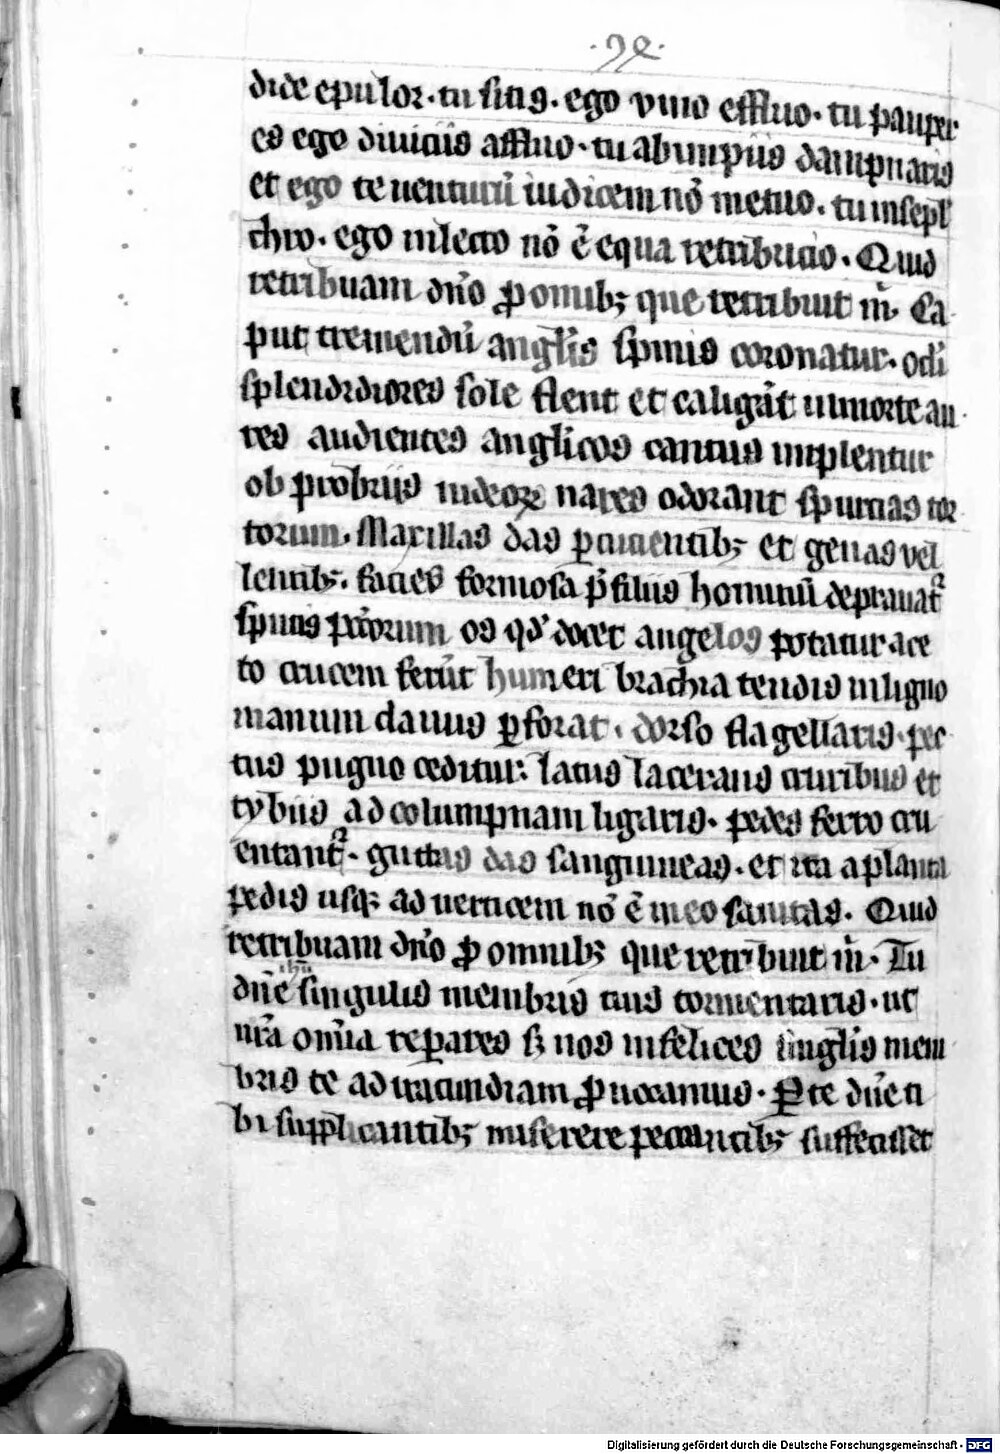 dide epulor · tu sitis · ego vino effluo · tu pauper
es ego diuiciis affluo · tu ab impiis dampnaris
et ego te uenturū iudicem nō metuo · tu in sepl
chro · ego in lecto nō ē equa retribucio · Quid
retribuam dn̄o ꝓ omnibꝫ que retribuit m̄ · Ca
put tremendū angl̄is spinis coronatur · ocl̄i
splendidiores sole flent et caligāt in morte au
res audientes angl̄icos cantus implentur
ob probrijs iudeoꝝ nares odorant sputa tor
torum · Maxillas das ꝑcucientibꝫ et genas vel
lentibꝫ · facies formosa p̄ filiis hominū deprauat᷑
sputis pctōrum os qd̄ docet angelos potatur ace
to crucem ferūt humeri brachia tendis in ligno
manum clauus ꝑforat · dorso flagellaris · pec
tus pugno ceditur · latus lacerans cruribus et
tybiis ad columpnam ligaris · pedes ferro cru
entant᷑ · guttas das sanguineas · et ita a planta
pedis usqꝫ ad uerticem nō ē in eo sanitas · Quid
retribuam dn̄o ꝓ omnibꝫ que retribuit m̄ · Tu
dn̄e ih̄u singulis membris tuis tormentaris · ut
nr̄a om̄ia reꝑares sꝫ nos infelices singl̄is mem
bris te ad iracundiam ꝓuocamus · Parce dn̄e ti
bi supplicantibꝫ miserere peccantibꝫ suffecisset
Digitalisierung gefördert durch die Deutsche Forschungsgemeinschaft - DFG